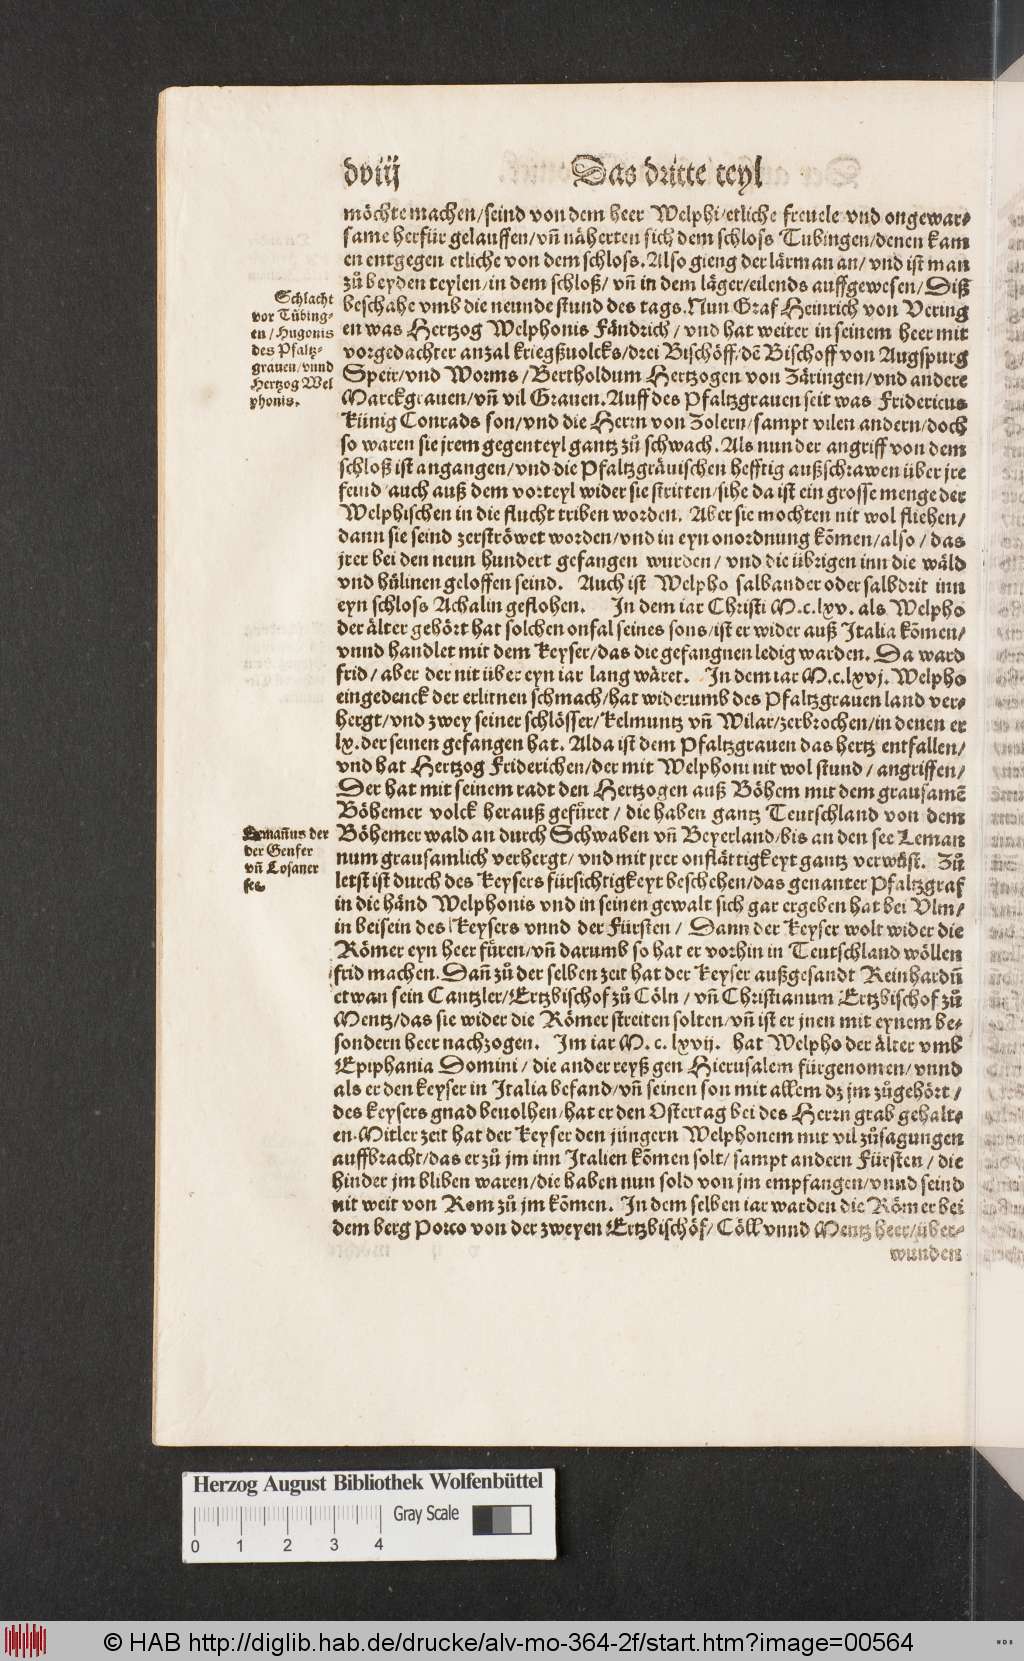 dviij
Das dritte teyl
möchte machen/seind von dem heer Welphi/etliche freuele vnd ongewar-
same herfür gelauffen/vñ näherten sich dem schloss Tubingen/denen kam
en entgegen etliche von dem schloss. Also gieng der lärman an/vnd ist man
zů beyden teylen/in dem schloß/vñ in dem läger/eilends auffgewesen/Diß
beschahe vmb die neunde stund des tags. Nun Graf Heinrich von Vering
en was Hertzog Welphonis Fändrich/vnd hat weiter in seinem heer mit
vorgedachter anzal kriegßuolcks/drei Bischöff/dē Bischoff von Augspurg
Speir/vnd Worms/Bertholdum Hertzogen von Zäringen/vnd andere
Marckgrauen/vñ vil Grauen. Auff des Pfaltzgrauen seit was Fridericus
Künig Conrads son/vnd die Herrn von Zolern/sampt vilen andern/doch
so waren sie jrem gegenteyl gantz zů schwach. Als nun der angriff von dem
schloß ist angangen/vnd die Pfaltzgräuischen hefftig außschrawen über jre
feind/auch auß dem vorteyl wider sie stritten/sihe da ist ein grosse menge der
Welphischen in die flucht triben worden. Aber sie mochten nit wol fliehen/
dann sie seind zerströwet worden/vnd in eyn onordnung kōmen/also/das
jrer bei den neun hundert gefangen wurden/vnd die übrigen inn die wäld
vnd hülinen geloffen seind. Auch ist Welpho salbander oder salbdrit inn
eyn schloss Achalin geflohen. In dem iar Christi M.c.lxv. als Welpho
der älter gehört hat solchen onfal seines sons/ist er wider auß Italia kōmen/
vnnd handlet mit dem Keyser/das die gefangnen ledig warden. Da ward
frid/aber der nit über eyn iar lang wäret. In dem iar M.c.lxvj. Welpho
eingedenck der erlitnen schmach/hat widerumb des Pfaltzgrauen land ver-
hergt/vnd zwey seiner schlösser/Kelmuntz vñ Wilar/zerbrochen/in denen er
lx. der seinen gefangen hat. Alda ist dem Pfaltzgrauen das hertz entfallen/
vnd hat Hertzog Friderichen/der mit Welphoni nit wol stund/angriffen/
Der hat mit seinem radt den Hertzogen auß Böhem mit dem grausamē
Böhemer volck herauß gefüret/die haben gantz Teutschland von dem
Böhemer wald an durch Schwaben vñ Beyerland/bis an den see Leman
num grausamlich verhergt/vnd mit jrer onflättigkeyt gantz verwüst. Zů
letst ist durch des Keysers fürsichtigkeyt beschehen/das genanter Pfaltzgraf
in die händ Welphonis vnd in seinen gewalt sich gar ergeben hat bei Vlm/
in beisein des Keysers vnnd der Fürsten/Dann der Keyser wolt wider die
Römer eyn heer füren/vñ darumb so hat er vorhin in Teutschland wöllen
frid machen. Dañ zů der selben zeit hat der Keyser außgesandt Reinhardū
etwan sein Cantzler/Ertzbischof zů Cöln/vñ Christianum Ertzbischof zů
Mentz/das sie wider die Römer streiten solten/vñ ist er jnen mit eynem be-
sondern heer nachzogen. Im iar M.c.lxvij. hat Welpho der älter vmb
Epiphania Domini/die ander reyß gen Hierusalem fürgenomen/vnnd
als er den keyser in Italia befand/vñ seinen son mit allem dz jm zůgehört/
des keysers gnad beuolhen/hat er den Ostertag bei des Herrn grab gehalt-
en. Mitler zeit hat der Keyser den jüngern Welphonem mit vil zůsagungen
auffbracht/das er zů jm inn Italien kōmen solt/sampt andern Fürsten/die
hinder jm bliben waren/die haben nun sold von jm empfangen/vnnd seind
nit weit von Rom zů jm kōmen. In dem selben iar warden die Römer bei
dem berg Porco von der zweyen Ertzbischöf/Cöll vnnd Mentz heer/über-
wunden
Schlacht
vor Tübing-
en/Hugonis
des Pfaltz-
grauen/vnnd
Hertzog Wel
phonis.
Lemañus der
der Genfer
vñ Losaner
see.
Herzog August Bibliothek Wolfenbüttel
Gray Scale
0 1 2 3 4
© HAB http://diglib.hab.de/drucke/alv-mo-364-2f/start.htm?image=00564